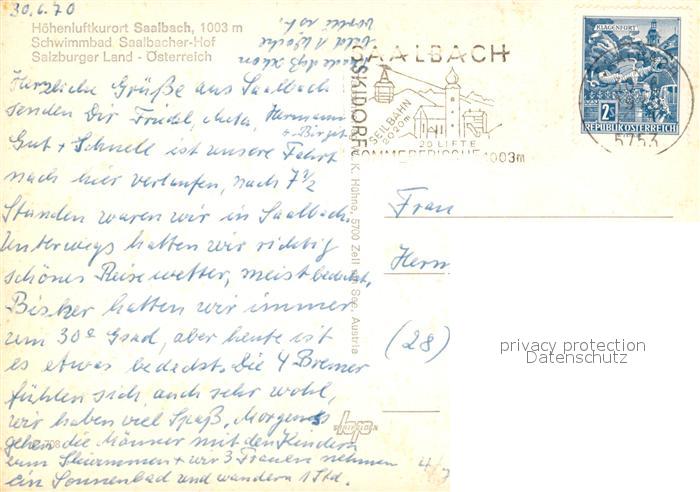 30.6.70
Höhenluftkurort Saalbach, 1003 m
Schwimmbad Saalbacher-Hof
Salzburger Land - Österreich
Herzliche Grüße aus Saalbach
senden Dir Friedel, Anta, Hermann
+ Birgit
Gut + Schnell ist unsere Fahrt
nach hier verlaufen, nach 7½
Stunden waren wir in Saalbach.
Unterwegs hatten wir richtig
schönes Reisewetter, meist bedeckt.
Bisher hatten wir immer
um 30° Grad, aber heute ist
es etwas bedeckt. Die 4 Bremer
fühlen sich auch sehr wohl,
wir haben viel Spaß. Morgens
gehen die Männer mit den Kindern
zum Schwimmen + wir 3 Frauen nehmen
ein Sonnenbad und wandern 1 Std.
SAALBACH
SKIDORF
SEILBAHN
2020m
20 LIFTE
SOMMERFRISCHE 1003m
KLAGENFURT
2S
REPUBLIK ÖSTERREICH
5753
K. Hühne, 5700 Zell am See, Austria
Frau
Herrn
(28)
privacy protection
Datenschutz